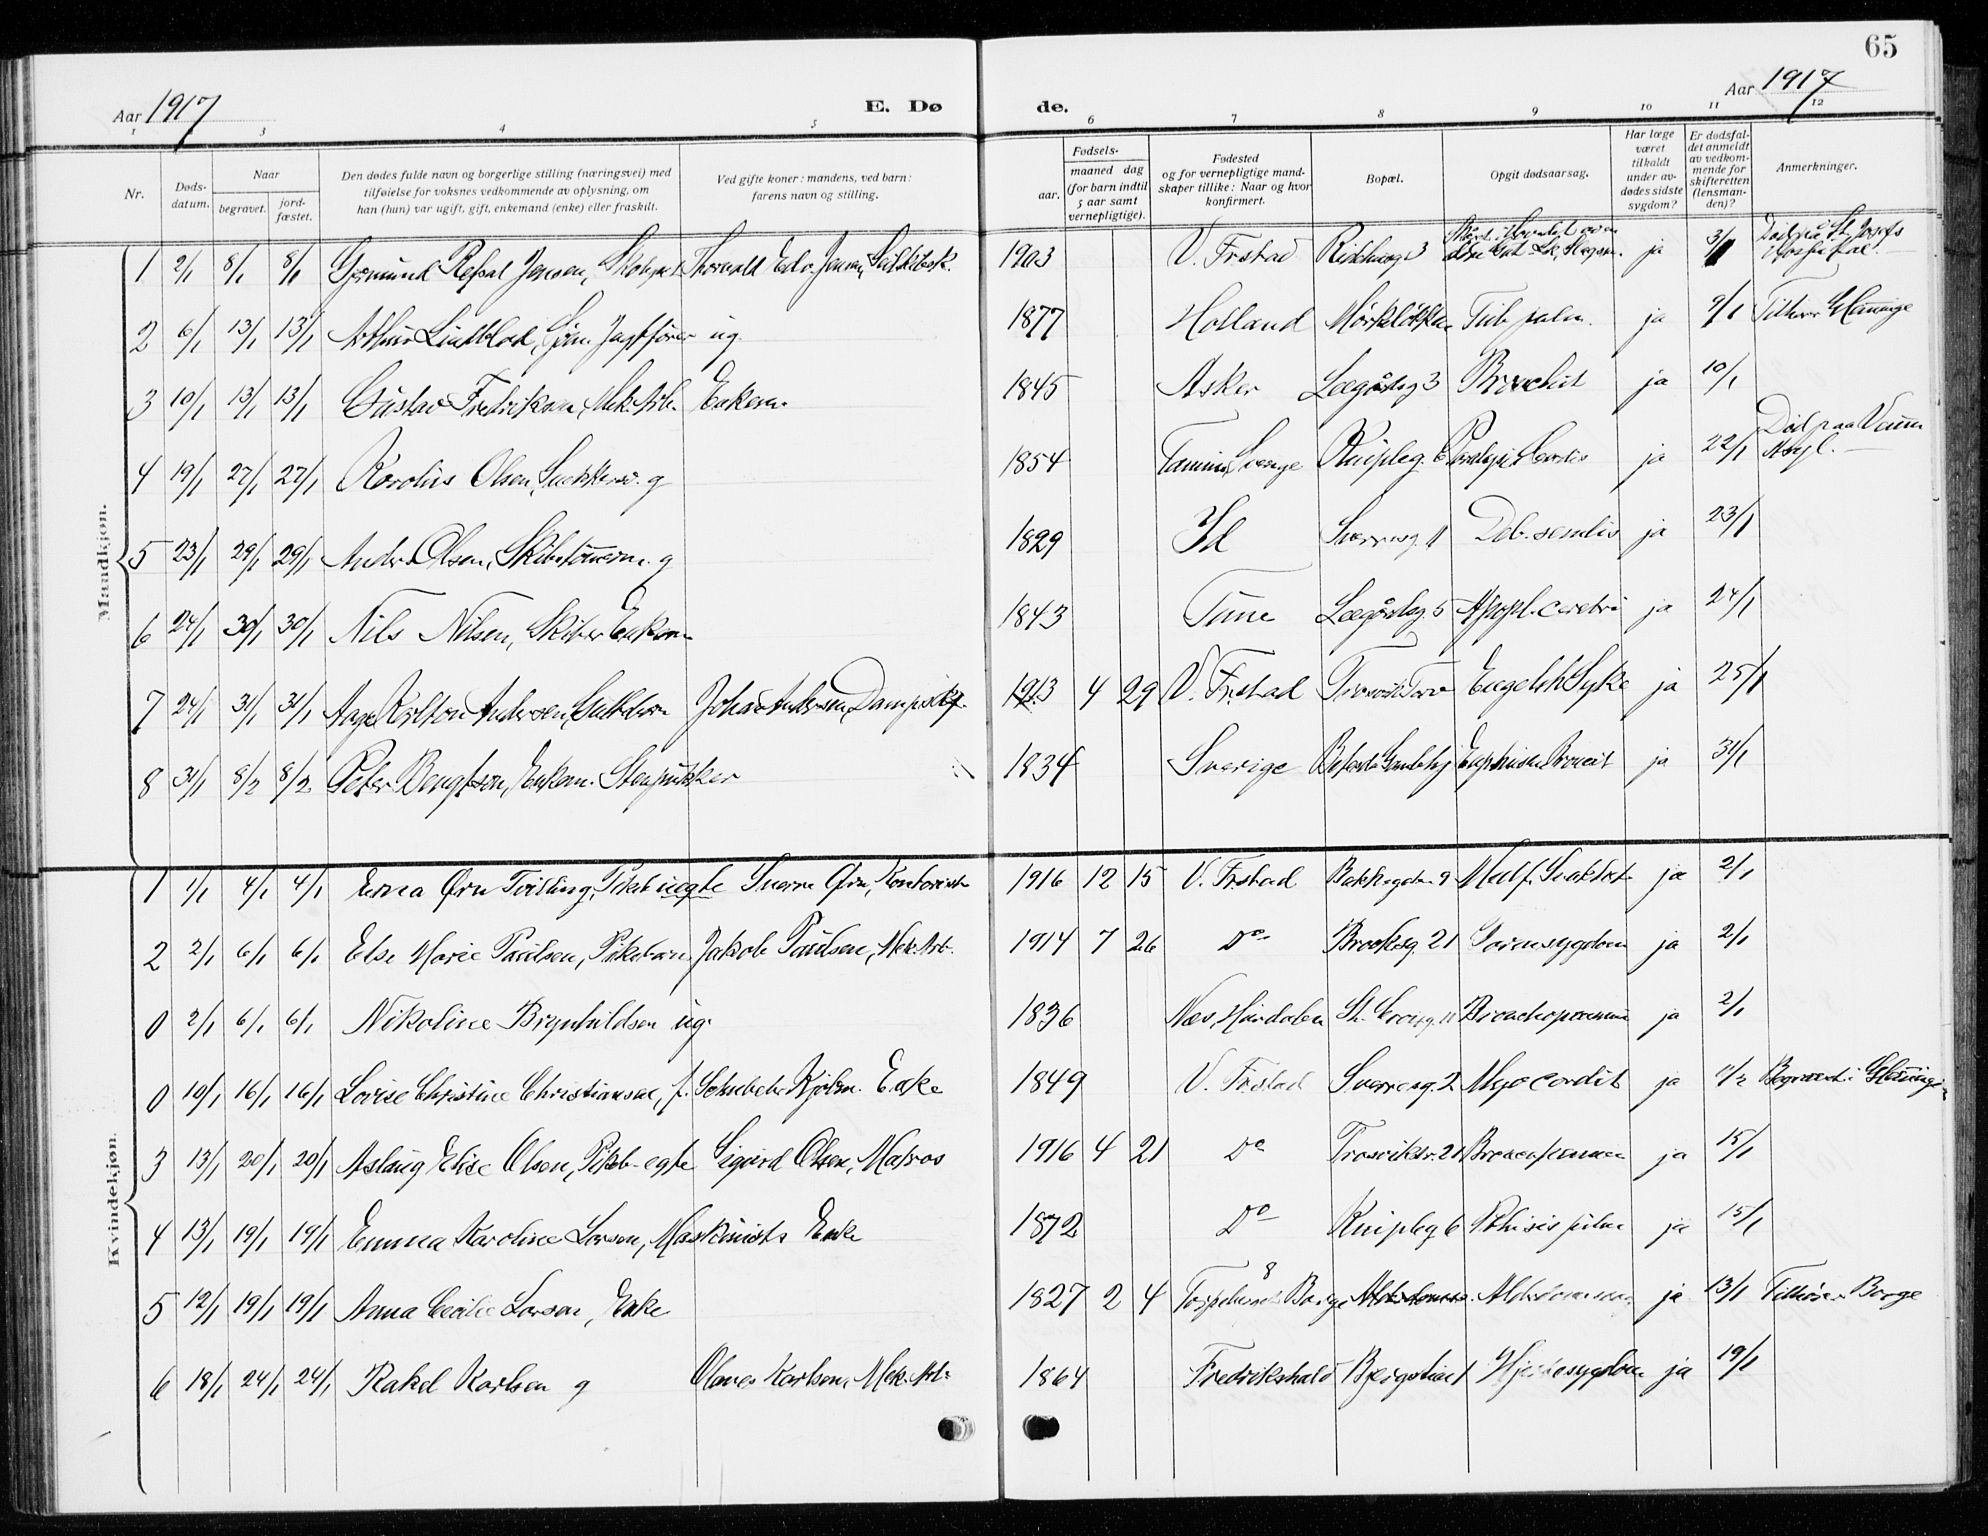 65
Aar 1917
E. Dø
de.
Aar 1917
1 2 3 4 5 6 7 8 9 10 11 12
Nr.
Døds-
datum.
Naar
begravet.
jord-
fæstet.
Den dødes fulde navn og borgerlige stilling (næringsvei) med
tilføielse for voksnes vedkommende av oplysning, om
han (hun) var ugift, gift, enkemand (enke) eller fraskilt.
Ved gifte koner: mandens, ved barn:
farens navn og stilling.
Fødsels-
aar.
maaned dag
(for barn indtil
5 aar samt
vernepligtige).
Fødested
og for vernepligtige mand-
skaper tillike: Naar og hvor
konfirmert.
Bopæl.
Opgit dødsaarsag.
Har læge
været
tilkaldt
under av-
dødes sidste
sygdom?
Er dødsfal-
det anmeldt
av vedkom-
mende for
skifteretten
(lensman-
den)?
Anmerkninger.
Mandkjøn.
1 2/1 8/1 8/1 Jensen, Thorvald Edv. Jensen, 1903 V. Frstad ja 3/1 St. Josefs
Hospital.
2 6/1 13/1 13/1 Arthur Lindblad, ug. 1877 Holland Tub. pulm. ja 9/1 Tilhører Glemminge
3 10/1 13/1 13/1 Gustav Fredriksen, Mek. Arb. Enkem. 1845 Asker Lægårdsg 3 Bronchit ja 10/1
4 19/1 27/1 27/1 Karolius Olsen, g 1854 Sverige Knipleg. 6 ja 22/1 Død paa Verum
Asyl.
5 23/1 29/1 29/1 Anders Olsen, Skibstømerm. g 1829 Id Sverresg. 11 Deb. senilis ja 23/1
6 24/1 30/1 30/1 Nils Nilsen, Skiber Enkem 1843 Tune Lægårdsg. 5 Apopl. cerebri ja 24/1
7 24/1 31/1 31/1 Aage Andersen, Johan Andersen, Dampskf. 1913 4 29 V. Frstad Engelsk Syke ja 25/1
8 31/1 8/2 8/2 Peter Bengtson, Enkem. Stenpukker 1834 Sverige ja 31/1
Kvindekjøn.
1 1/1 4/1 4/1 Erna Ørn Tvilling, Pikeb uegte Sverre Ørn, Kontorist 1916 12 15 V. Frstad Bakkegaten 9 Medf. Svakhet ja 2/1
2 2/1 6/1 6/1 Else Marie Paulsen, Pikebarn Jakob Paulsen, Mek. Arb. 1914 7 26 Do Brochsg. 21 ja 2/1
0 2/1 6/1 6/1 Nikoline Brynhildsen ug. 1836 Bronchopneumoni ja 2/1
0 10/1 16/1 16/1 Lovise Christine Christiansen, f. Enke 1849 V. Frstad Sverresg. 2 Myocardit ja Begravet i Glemminge
3 13/1 20/1 20/1 Aslaug Elise Olsen, Pikeb. egte Sigurd Olsen, Matros 1916 4 21 Do Trosvikstr. 21 ja 15/1
4 13/1 19/1 19/1 Emma Karoline Larsen, Maskinists Enke 1872 Do Knipleg. 6 Phtisis pulm ja 15/1
5 12/1 19/1 19/1 Anna Cecilie Larsen, Enke 1827 2 4 Borge Alderdomssv. ja 13/1 Tilhører Borge
6 18/1 24/1 24/1 Rakel Karlsen g Karlsen, Mek. Arb. 1864 Fredrikshald Hjertesygdom ja 19/1